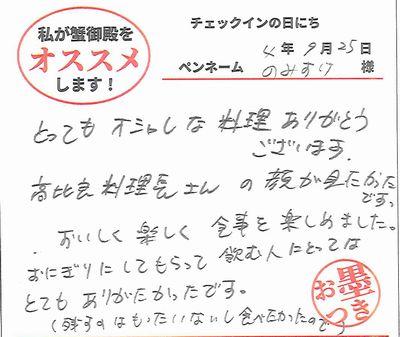 私が蟹御殿を
オススメ
します！
チェックインの日にち
4年9月25日
ペンネーム のみすけ 様
とっても オシャレな 料理 ありがとう
ございます。
高比良料理長さん の 顔が見たかった
ですっ
おいしく 楽しく 食事を 楽しめました。
おにぎりにしてもらって 飲む人にとっては
とても ありがたかったです。
(残すのはもったいないし食べたかったので)
お墨つき